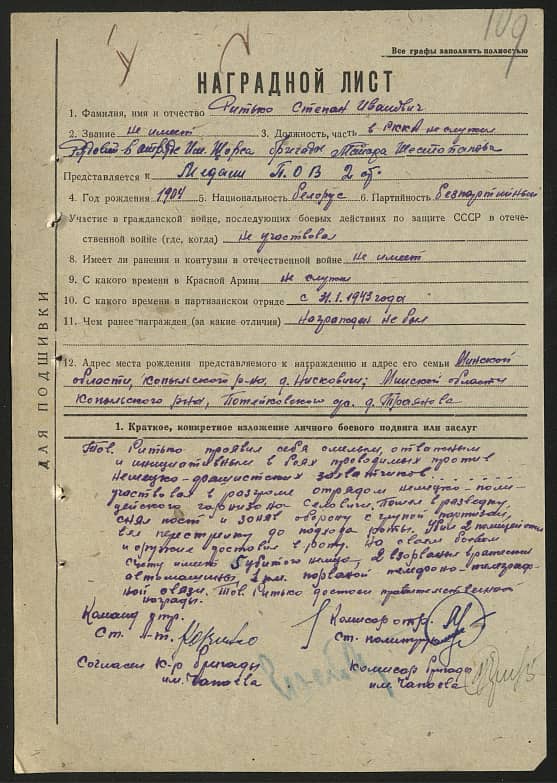 109
Все графы заполнять полностью
НАГРАДНОЙ ЛИСТ
1. Фамилия, имя и отчество Ритько Степан Иванович
2. Звание не имеет 3. Должность, часть в РККА не служил
Рядовой в отряде им. Щорса бригады
Представляется к Медали П.О.В 2 ст.
4. Год рождения 1904 5. Национальность белорус 6. Партийность Безпартийный
Участие в гражданской войне, последующих боевых действиях по защите СССР в отече-
ственной войне (где, когда) не участвовал
8. Имеет ли ранения и контузии в отечественной войне не имеет
9. С какого времени в Красной Армии не служил
10. С какого времени в партизанском отряде с 31.1.1943 года
11. Чем ранее награжден (за какие отличия) Награжден не был
12. Адрес места рождения представляемого к награждению и адрес его семьи Минской
области, Копыльского р-на, д. Нисковичи; Минской области
Копыльского р-на, Потейковского д. Траянова
ДЛЯ ПОДШИВКИ
1. Краткое, конкретное изложение личного боевого подвига или заслуг
Тов. Ритько проявил себя смелым, отважным
и инициативным в боях проводимых против
немецко-фашистских захватчиков.
участвовал в разгроме отрядом немецко-поли-
дейского гарнизона Пошел в разведку,
снял пост и занял оборону с группой партизан,
вел перестрелку до подхода роты. Убил 2 полицейских
и оружие доставил в роту. На своем боевом
счету имеет 5 убитого немца, 2 взорванных вражеских
автомашины, км. порваной телефоно-телеграф-
ной связи. Тов Ритько достоен правительственной
награды.
Команд. отр. Комисар отр.
Ст. л-т. Ст. политрук
Согласен к-р бригады Комисар бригады
им. Чапаева им. Чапаева